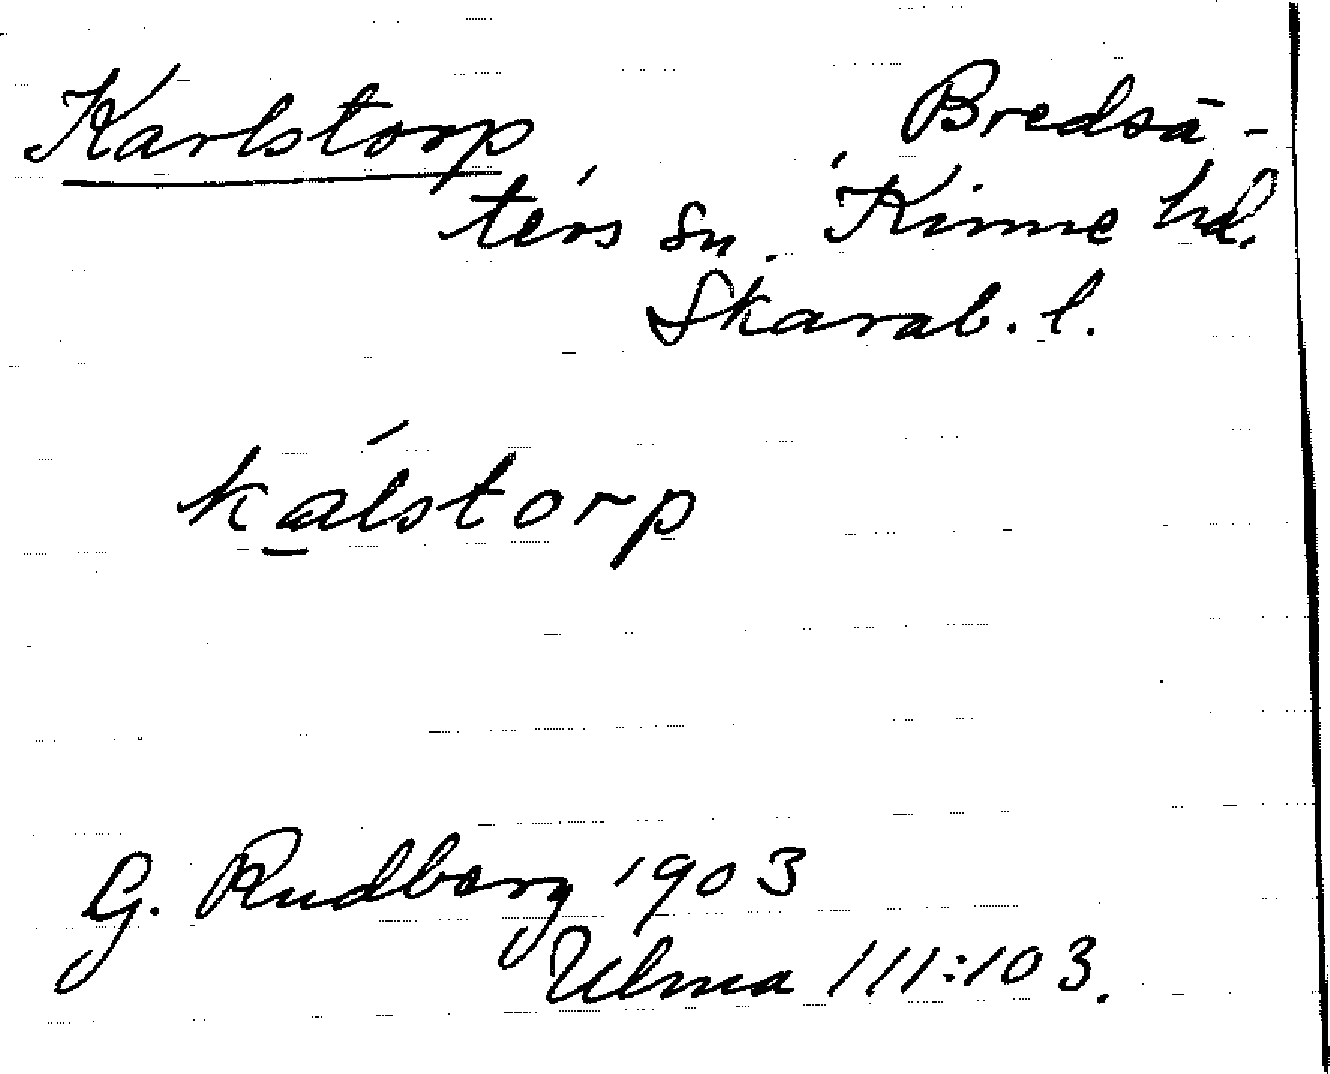 Karlstorp Bredsä-
ters sn. Kinne hd.
Skarab. l.
kálstorp
G. Rudberg 1903
Ulma 111:103.